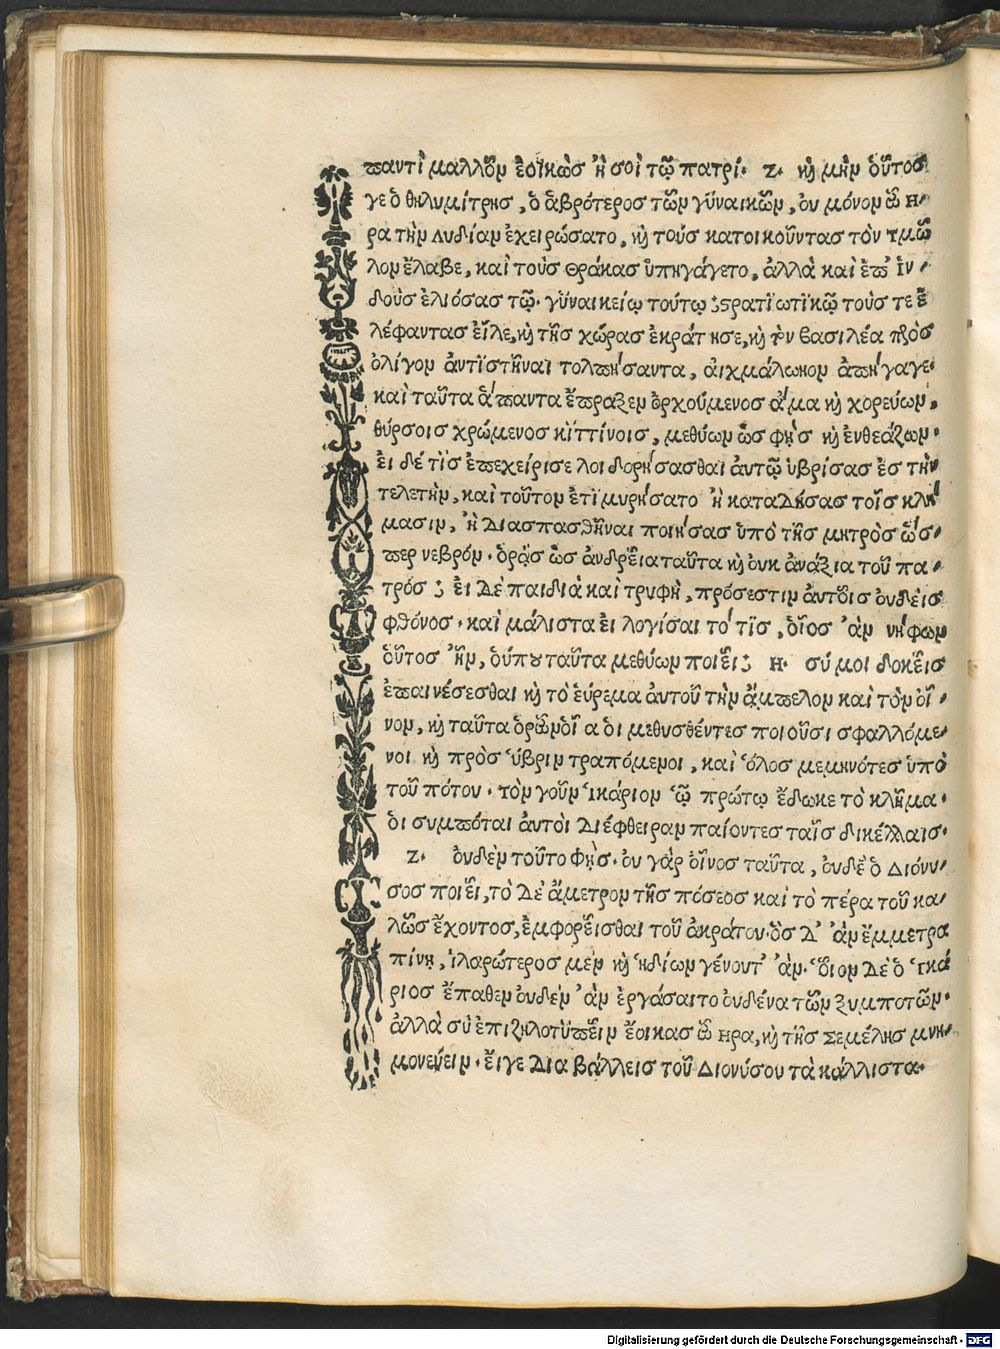 παντὶ μαλλὸν ἐοϊκὼς ἢ σοὶ τῷ πατρί. Ζ. καὶ μὴν οὗτος
γε ὁ θηλυμίτρης, ὁ ἁβρότερος τῶν γῦναικῶν, ου μόνον ὦ Η-
ρα τὴν Λυδίαν ἐχειρώσατο, καὶ τοὺς κατοικοῦντας τὸν Τμῶ
λον ἔλαβε, καὶ τοὺς Θρᾶκας ὑπηγάγετο, ἀλλὰ καὶ ἐπ' ἰν-
δοὺς ἐλιόσας τῷ. γῦναικείῳ τούτῳ στρατϊωτϊκῷ τοὺς τε ἐ
λέφαντας εἷλε, καὶ τῆς χώρας ἐκράτησε, καὶ τὸν βασιλέα πρὸς
ὀλίγον ἀντϊστῆναι τολπήσαντα, ἀιχμάλωτον ἀπήγαγε.
καὶ ταῦτα ἅπαντα ἔπραξεν ὀρχούμενος ἅμα καὶ χορεύων,
θύρσοις χρώμενος κϊττίνοις, μεθύων ὡς φῂς καὶ ἐνθεάζων.
ἐι δέ τϊς ἐπεχείρισε λοιδορήσασθαι ἀυτῷ ὑβρίσας ἐς τὴν
τελετὴν, καὶ τοῦτον ἐτϊμωρήσατο ἢ καταδήσας τοῖς κλή
μασιν, ἢ διασπασθῆναι ποιήσας ὑπὸ τῆς μητρὸς ὥσ-
περ νεβρόν. ὁρᾷς ὡς ἀνδρεῖα ταῦτα καὶ ουκ ἀνάξια τοῦ πα-
τρός; ἐι δὲ παιδιὰ καὶ τρυφὴ, πρόσεστιν ἀυτοῖς ὀυδεὶς
φθόνος. καὶ μάλιστα ἐι λογίσαιτό τϊς, ὁῖος ἂν νήφων
οὗτος ἦν, ὁύπου ταῦτα μεθύων ποιεῖ; Η. σύ μοι δοκεῖς
ἐπαινέσεσθαι καὶ τὸ ἑύρεμα ἀυτοῦ τὴν ἄμπελον καὶ τὸν οἶ-
νον, καὶ ταῦτα ὁρῶν οἷα ὁι μεθυσθέντες ποιοῦσι σφαλλόμε-
νοι καὶ πρὸς ὕβριν τραπόμενοι, καὶ ὅλος μεμηνότες ὑπὸ
τοῦ πότου. τὸν γοῦν Ἰκάριον ᾧ πρώτῳ ἔδωκε τὸ κλῆμα.
ὁι συμπόται ἀυτὸι διέφθειραν παίοντες ταῖς δικέλλαις.
Ζ. ὀυδὲν τοῦτο φῄς. ου γὰρ ὁῖνος ταῦτα, ὀυδὲ ὁ Διόνυ-
σος ποιεῖ, τὸ δὲ ἄμετρον τῆς πόσεος καὶ τὸ πέρα τοῦ κα-
λῶς ἔχοντος, ἐμφορεῖσθαι τοῦ ἀκράτου. ὃς δ' ἂν ἔμμετρα
πίνῃ, ἱλαρώτερος μὲν καὶ ἡδίων γένουτ' ἄν. ὅιον δὲ ὁ ἰκά
ριος ἔπαθεν ὀυδὲν ἂν ἐργάσαιτο ὀυδένα τῶν ξυμποτῶν.
ἀλλὰ σὺ ἐπιζηλοτϋπεῖν ἔοικας ὦ Ηρα, καὶ τῆς Σεμέλης μνη-
μονεύειν. ἔιγε διαβάλλεις τοῦ Διονύσου τὰ κάλλιστα.
Digitalisierung gefördert durch die Deutsche Forschungsgemeinschaft - DFG